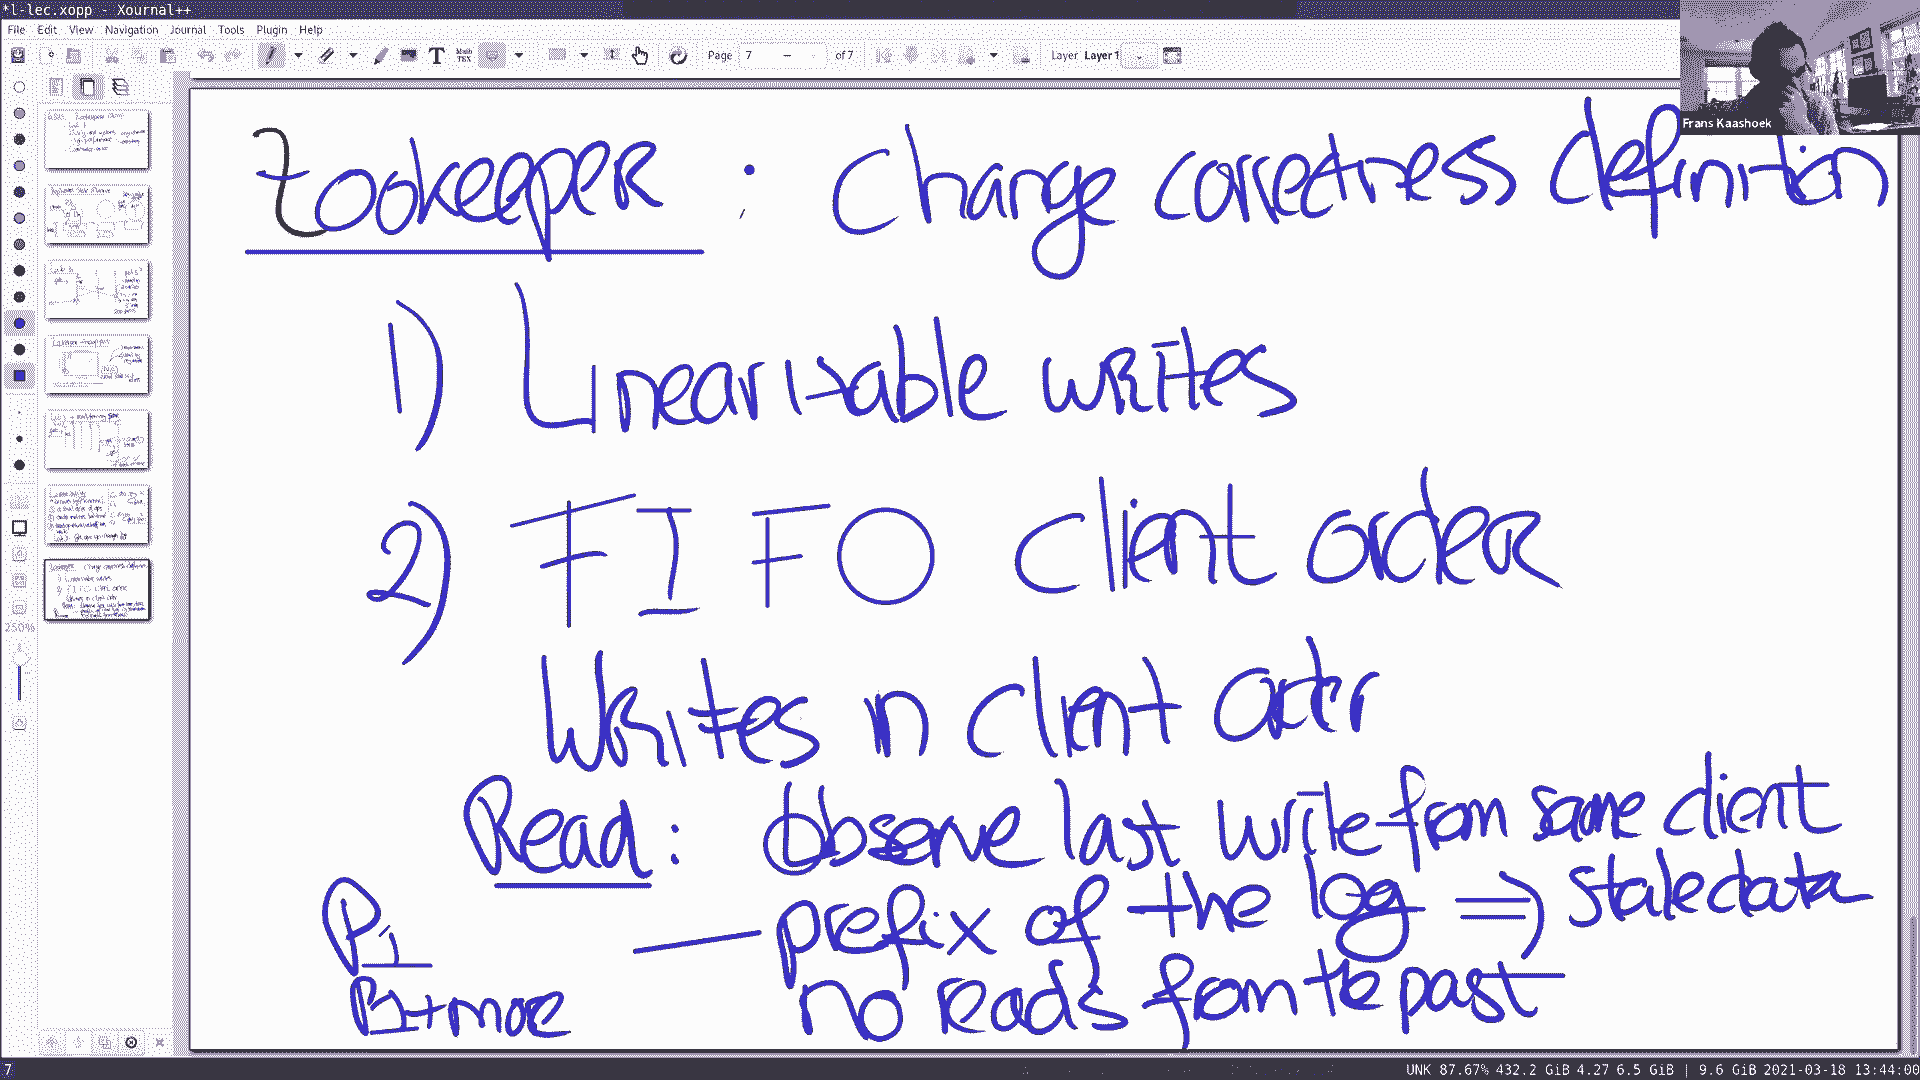 *l-lec.xopp - Xournal++
File Edit View Navigation Journal Tools Plugin Help
Page 7 of 7 Layer Layer 1
Frans Kaashoek
Zookeeper : Change correctness definition
1) Linearizable writes
2) FIFO client order
Writes in client order
Read: Observe last write from same client
P1 — prefix of the log ⇒ stale data
P1+more no reads from the past
250%
7 UNK 87.67% 432.2 GiB 4.27 6.5 GiB | 9.6 GiB 2021-03-18 13:44:00